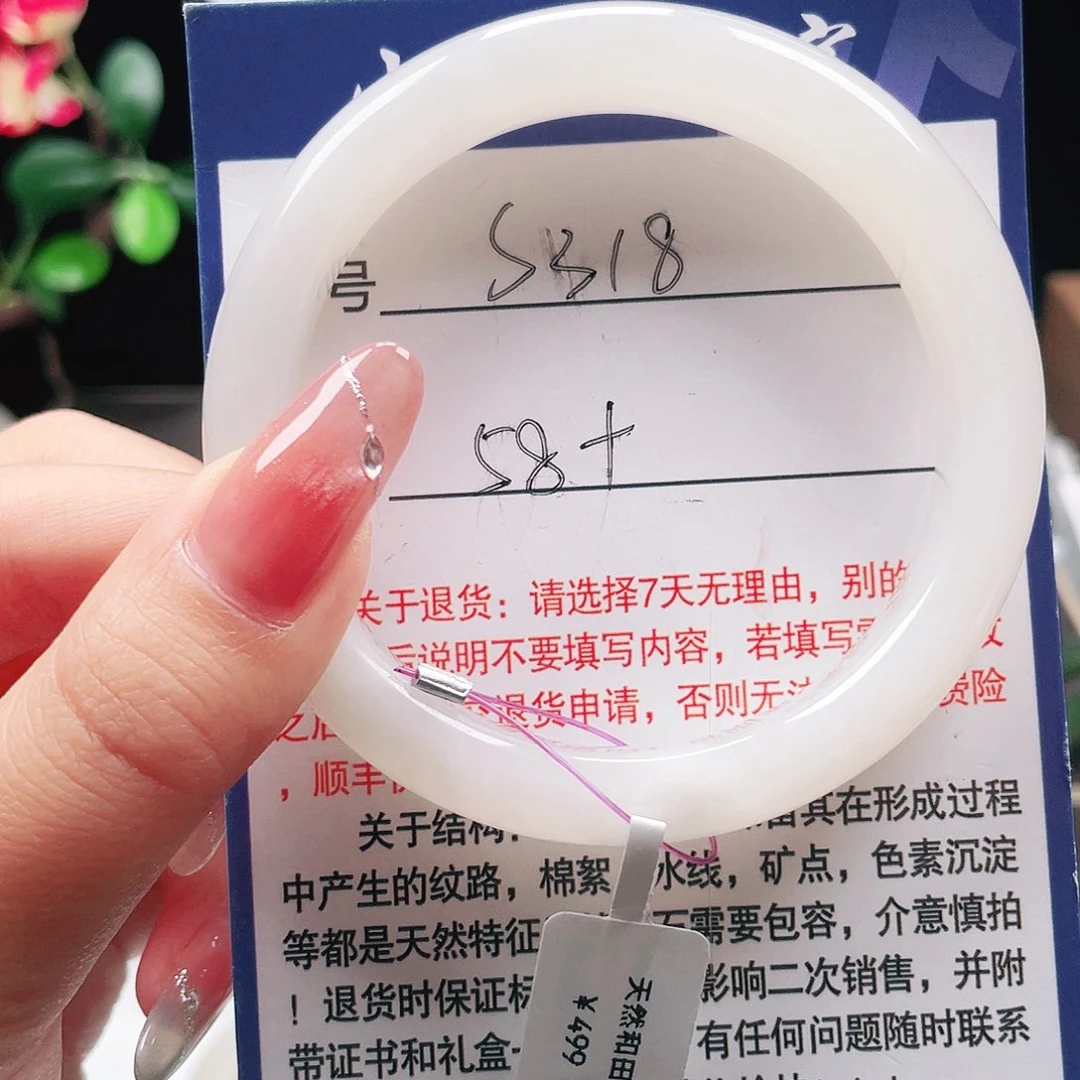 号 S318
58+
关于退货：请选择7天无理由，别的
后说明不要填写内容，若填写
退货申请，否则无法 费险
之后
，顺丰
关于结构：
其在形成过程
中产生的纹路，棉絮 水线，矿点，色素沉淀
等都是天然特征 石需要包容，介意慎拍
！退货时保证标 影响二次销售，并附
带证书和礼盒 有任何问题随时联系
天然和田
¥499